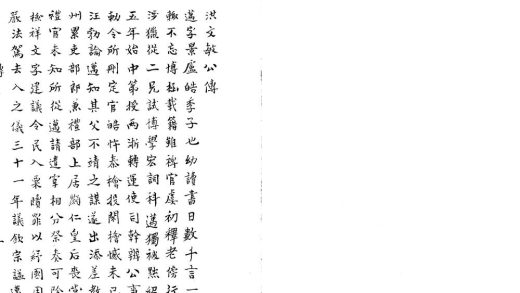 洪文敏公傳
邁字景盧皓季子也幼讀書日數千言一
輒不忘博極載籍雖稗官虞初釋老傍行
涉獵從二兄試博學宏詞科邁獨被黜紹
五年始中第授兩浙轉運使司幹辦公事
勅令所刪定官皓忤秦檜投閒檜憾未已
汪勃論邁知其父不靖之謀遂出添差教
州累吏部郎兼禮部上居顯仁皇后喪當
禮官未知所從邁請遣宰相分祭奏可除
檢祥文字建議令民入粟贖罪以紓國用
嚴法駕去入之儀三十一年議欽宗諡邁